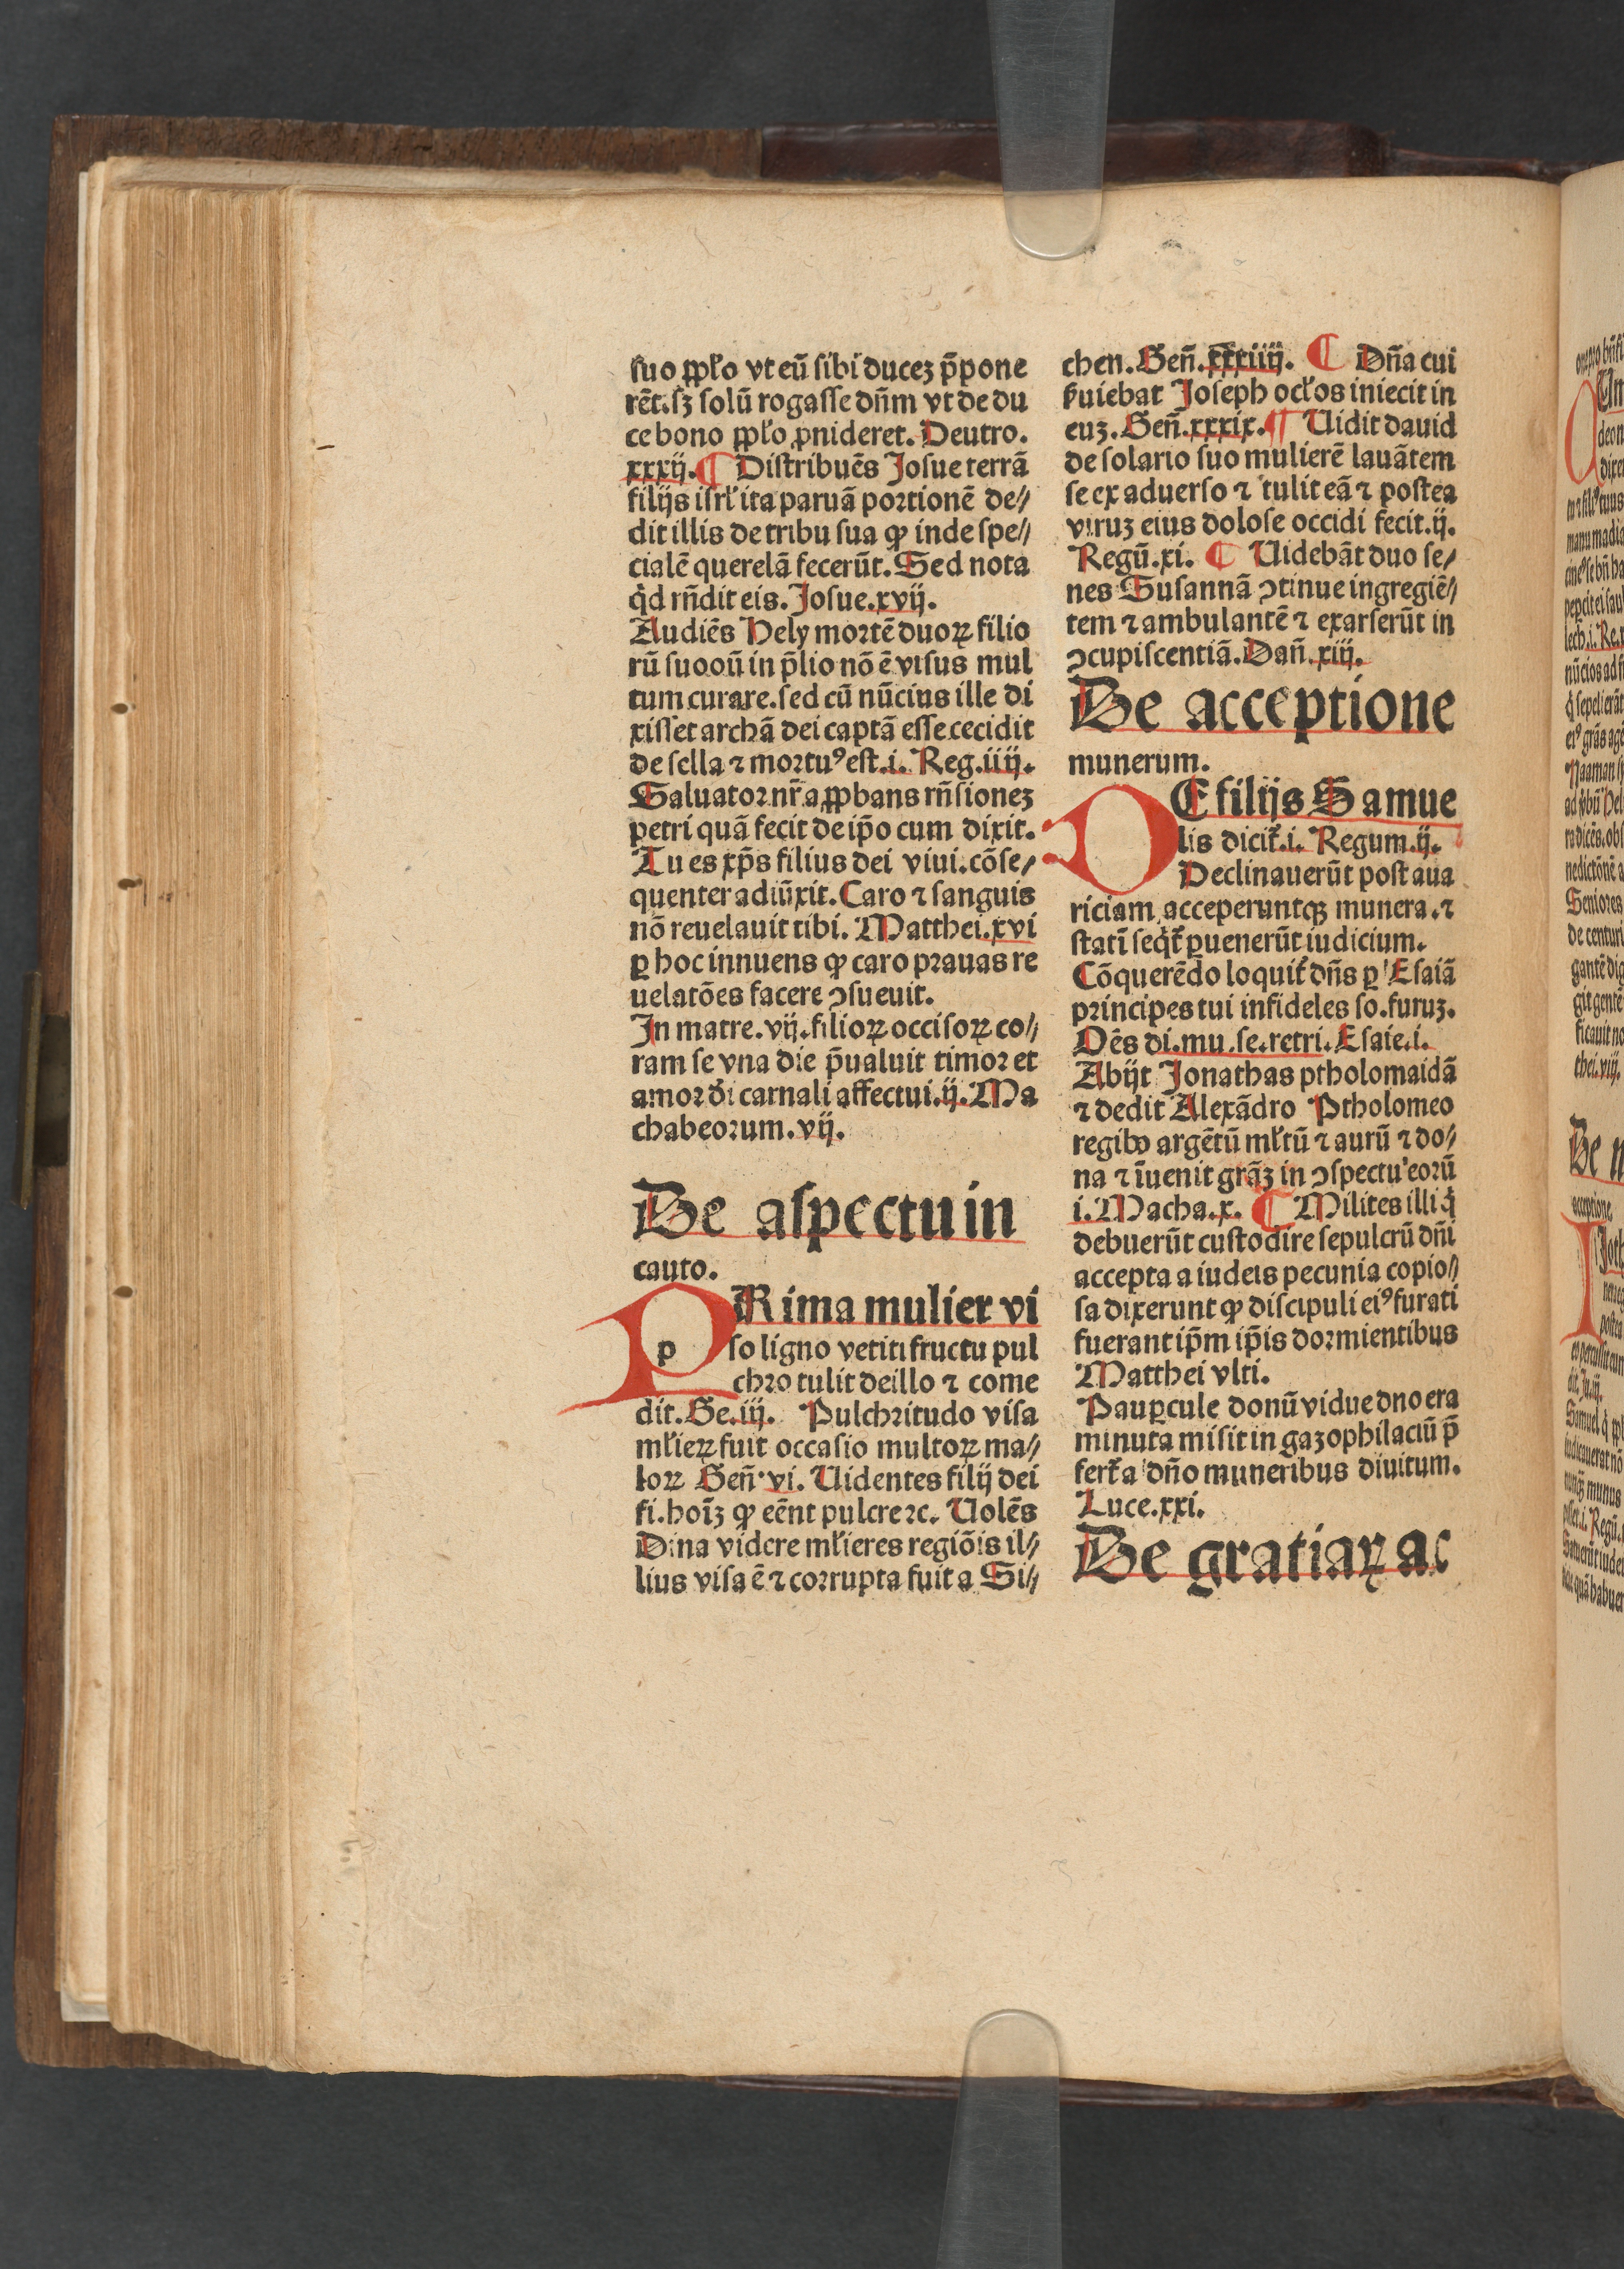 suo ꝓpło vt eū sibi ducez p̄pone
rēt.sꝫ solū rogasse dn̄m vt de du
ce bono ꝓpło ꝓnideret. Deutro.
xxxij. ¶ Distribuēs Josue terrā
filijs isrł ita paruā portionē de//
dit illis de tribu sua ꝙ inde spe//
cialē querelā fecerūt. Sed nota
qd rn̄dit eis. Josue.xvij.
Audiēs Hely mortē duoꝝ filio
rū suoꝛū in p̄lio nō ē visus mul
tum curare.sed cū nūcius ille di
xisset archā dei captā esse.cecidit
de sella ⁊ mortuꝰ est.i. Reg.iiij.
Saluator nr̄ aꝓpbans rn̄sionez
petri quā fecit de ip̄o cum dixit.
Tu es xp̄s filius dei viui.cōse/
quenter adiūxit. Caro ⁊ sanguis
nō reuelauit tibi. Matthei.xvi
ꝑ hoc innuens ꝙ caro prauas re
uelatōes facere ꝯsueuit.
In matre.vij.filioꝝ occisoꝝ co//
ram se vna die p̄ualuit timor et
amor di carnali affectui.ij.Ma
chabeorum.vij.
De aspectu in
cauto.
PRima mulier vi
p so ligno vetiti fructu pul
chro tulit de illo ⁊ come
dit.Ge.iij. Pulchritudo visa
młieꝝ fuit occasio multoꝝ ma//
loꝝ Gen̄.vi. Uidentes filij dei
fi.hoīꝫ ꝙ eēnt pulcre ⁊c. Uolēs
Dina videre młieres regiōis il//
lius visa ē ⁊ corrupta fuit a Si//
chen. Gen̄.xxxiiij. ¶ Dn̄a cui
ẜuiebat Joseph ocłos iniecit in
euꝫ. Gen̄.xxxix. ¶ Uidit dauid
de solario suo mulierē lauātem
se ex aduerso ⁊ tulit eā ⁊ postea
viruꝫ eius dolose occidi fecit.ij.
Regū.xi. ¶ Uidebāt duo se/
nes Susannā ꝯtinue ingregiē//
tem ⁊ ambulantē ⁊ exarserūt in
ꝯcupiscentiā. Dan̄.xiij.
De acceptione
munerum.
DE filijs Samue
lis dicit̄.i. Regum.ij.
Declinauerūt post aua
riciam acceperuntqꝫ munera.⁊
statī seq̄t̄ ꝑuenerūt iudicium.
Cōquerēdo loquit̄ dn̄s ꝑ Esaiā
principes tui infideles so.furuꝫ.
Oēs di.mu.se.retri.Esaie.i.
Abijt Jonathas ptholomaidā
⁊ dedit Alexādro Ptholomeo
regibꝰ argētū młtū ⁊ aurū ⁊ do/
na ⁊ īuenit grāꝫ in ꝯspectu eorū
i.Macha.x. ¶ Milites illi q̇
debuerūt custodire sepulcrū dn̄i
accepta a iudeis pecunia copio//
sa dixerunt ꝙ discipuli eiꝰ furati
fuerant ip̄m ip̄is dormientibus
Matthei vlti.
Pauꝑcule donū vidue dno era
minuta misit in gazophilaciū p̄
fert̄ a dn̄o muneribus diuitum.
Luce.xxi.
De gratiaꝝ ac